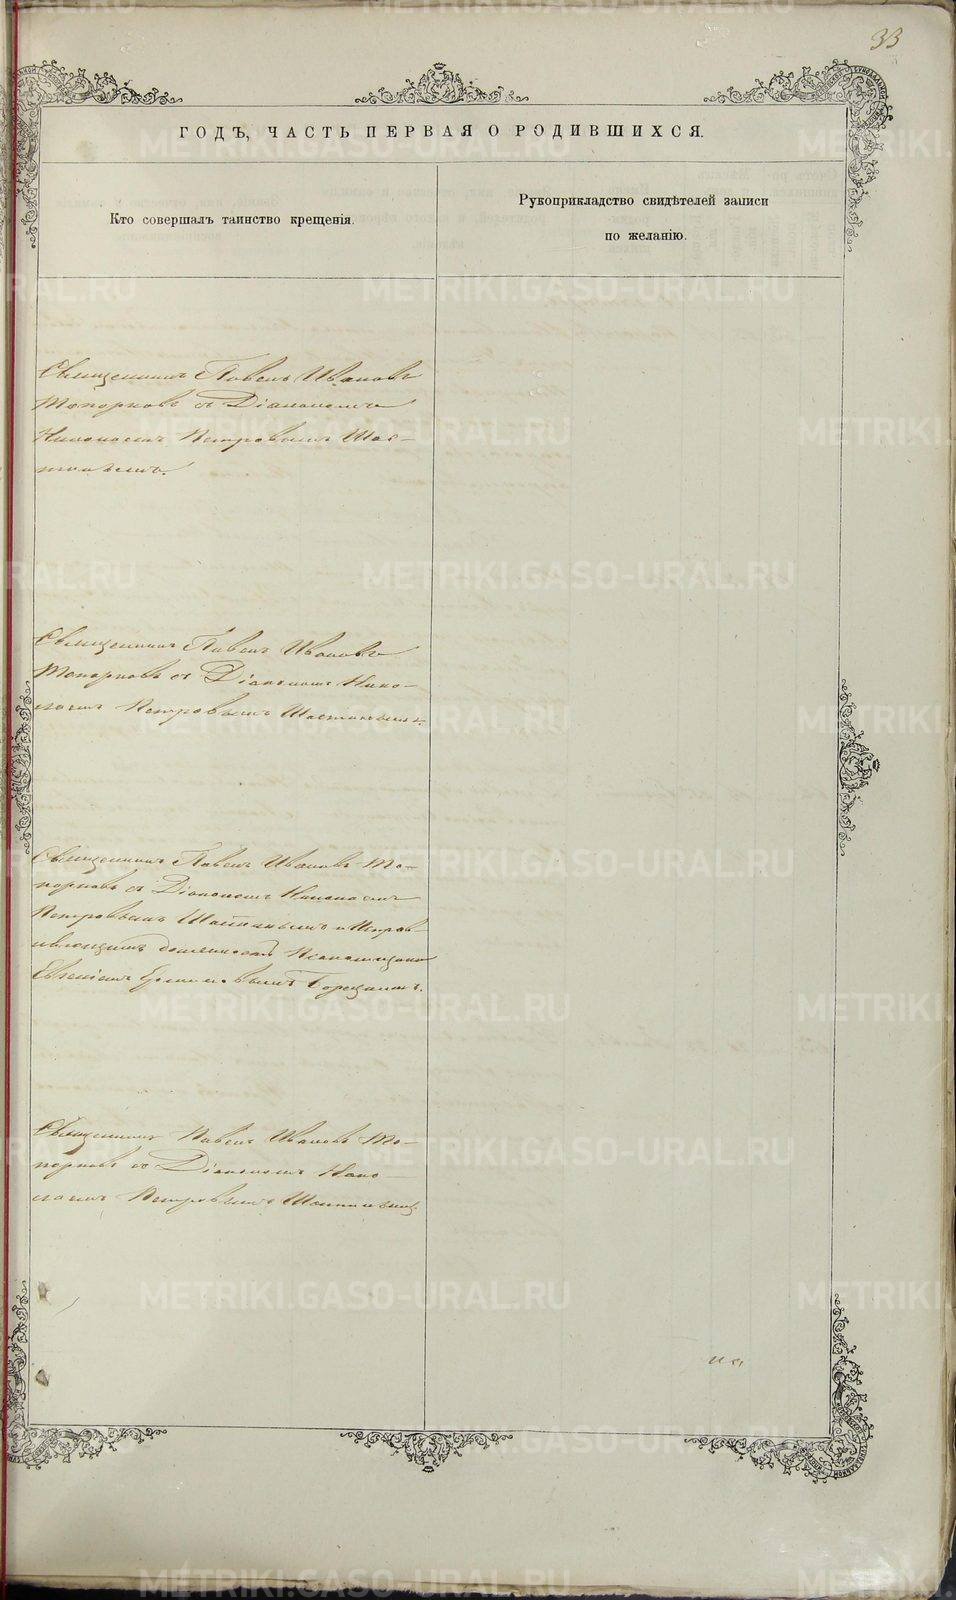 33
ГОДЪ, ЧАСТЬ ПЕРВАЯ О РОДИВШИХСЯ.
Кто совершалъ таинство крещенія.
Рукоприкладство свидѣтелей записи
по желанію.
Священникъ Павелъ Ивановъ
Топорковъ съ Діакономъ
Николаемъ Петровымъ
Священникъ Павелъ Ивановъ
Топорковъ съ Діакономъ Нико-
лаемъ Петровымъ
Священникъ Павелъ Ивановъ То-
порковъ съ Діакономъ Николаемъ
Петровымъ и Исправ-
ляющимъ должность Псаломщика
Евгеніемъ
Священникъ Павелъ Ивановъ То-
порковъ съ Діакономъ Нико-
лаемъ Петровымъ
METRIKI.GASO-URAL.RU